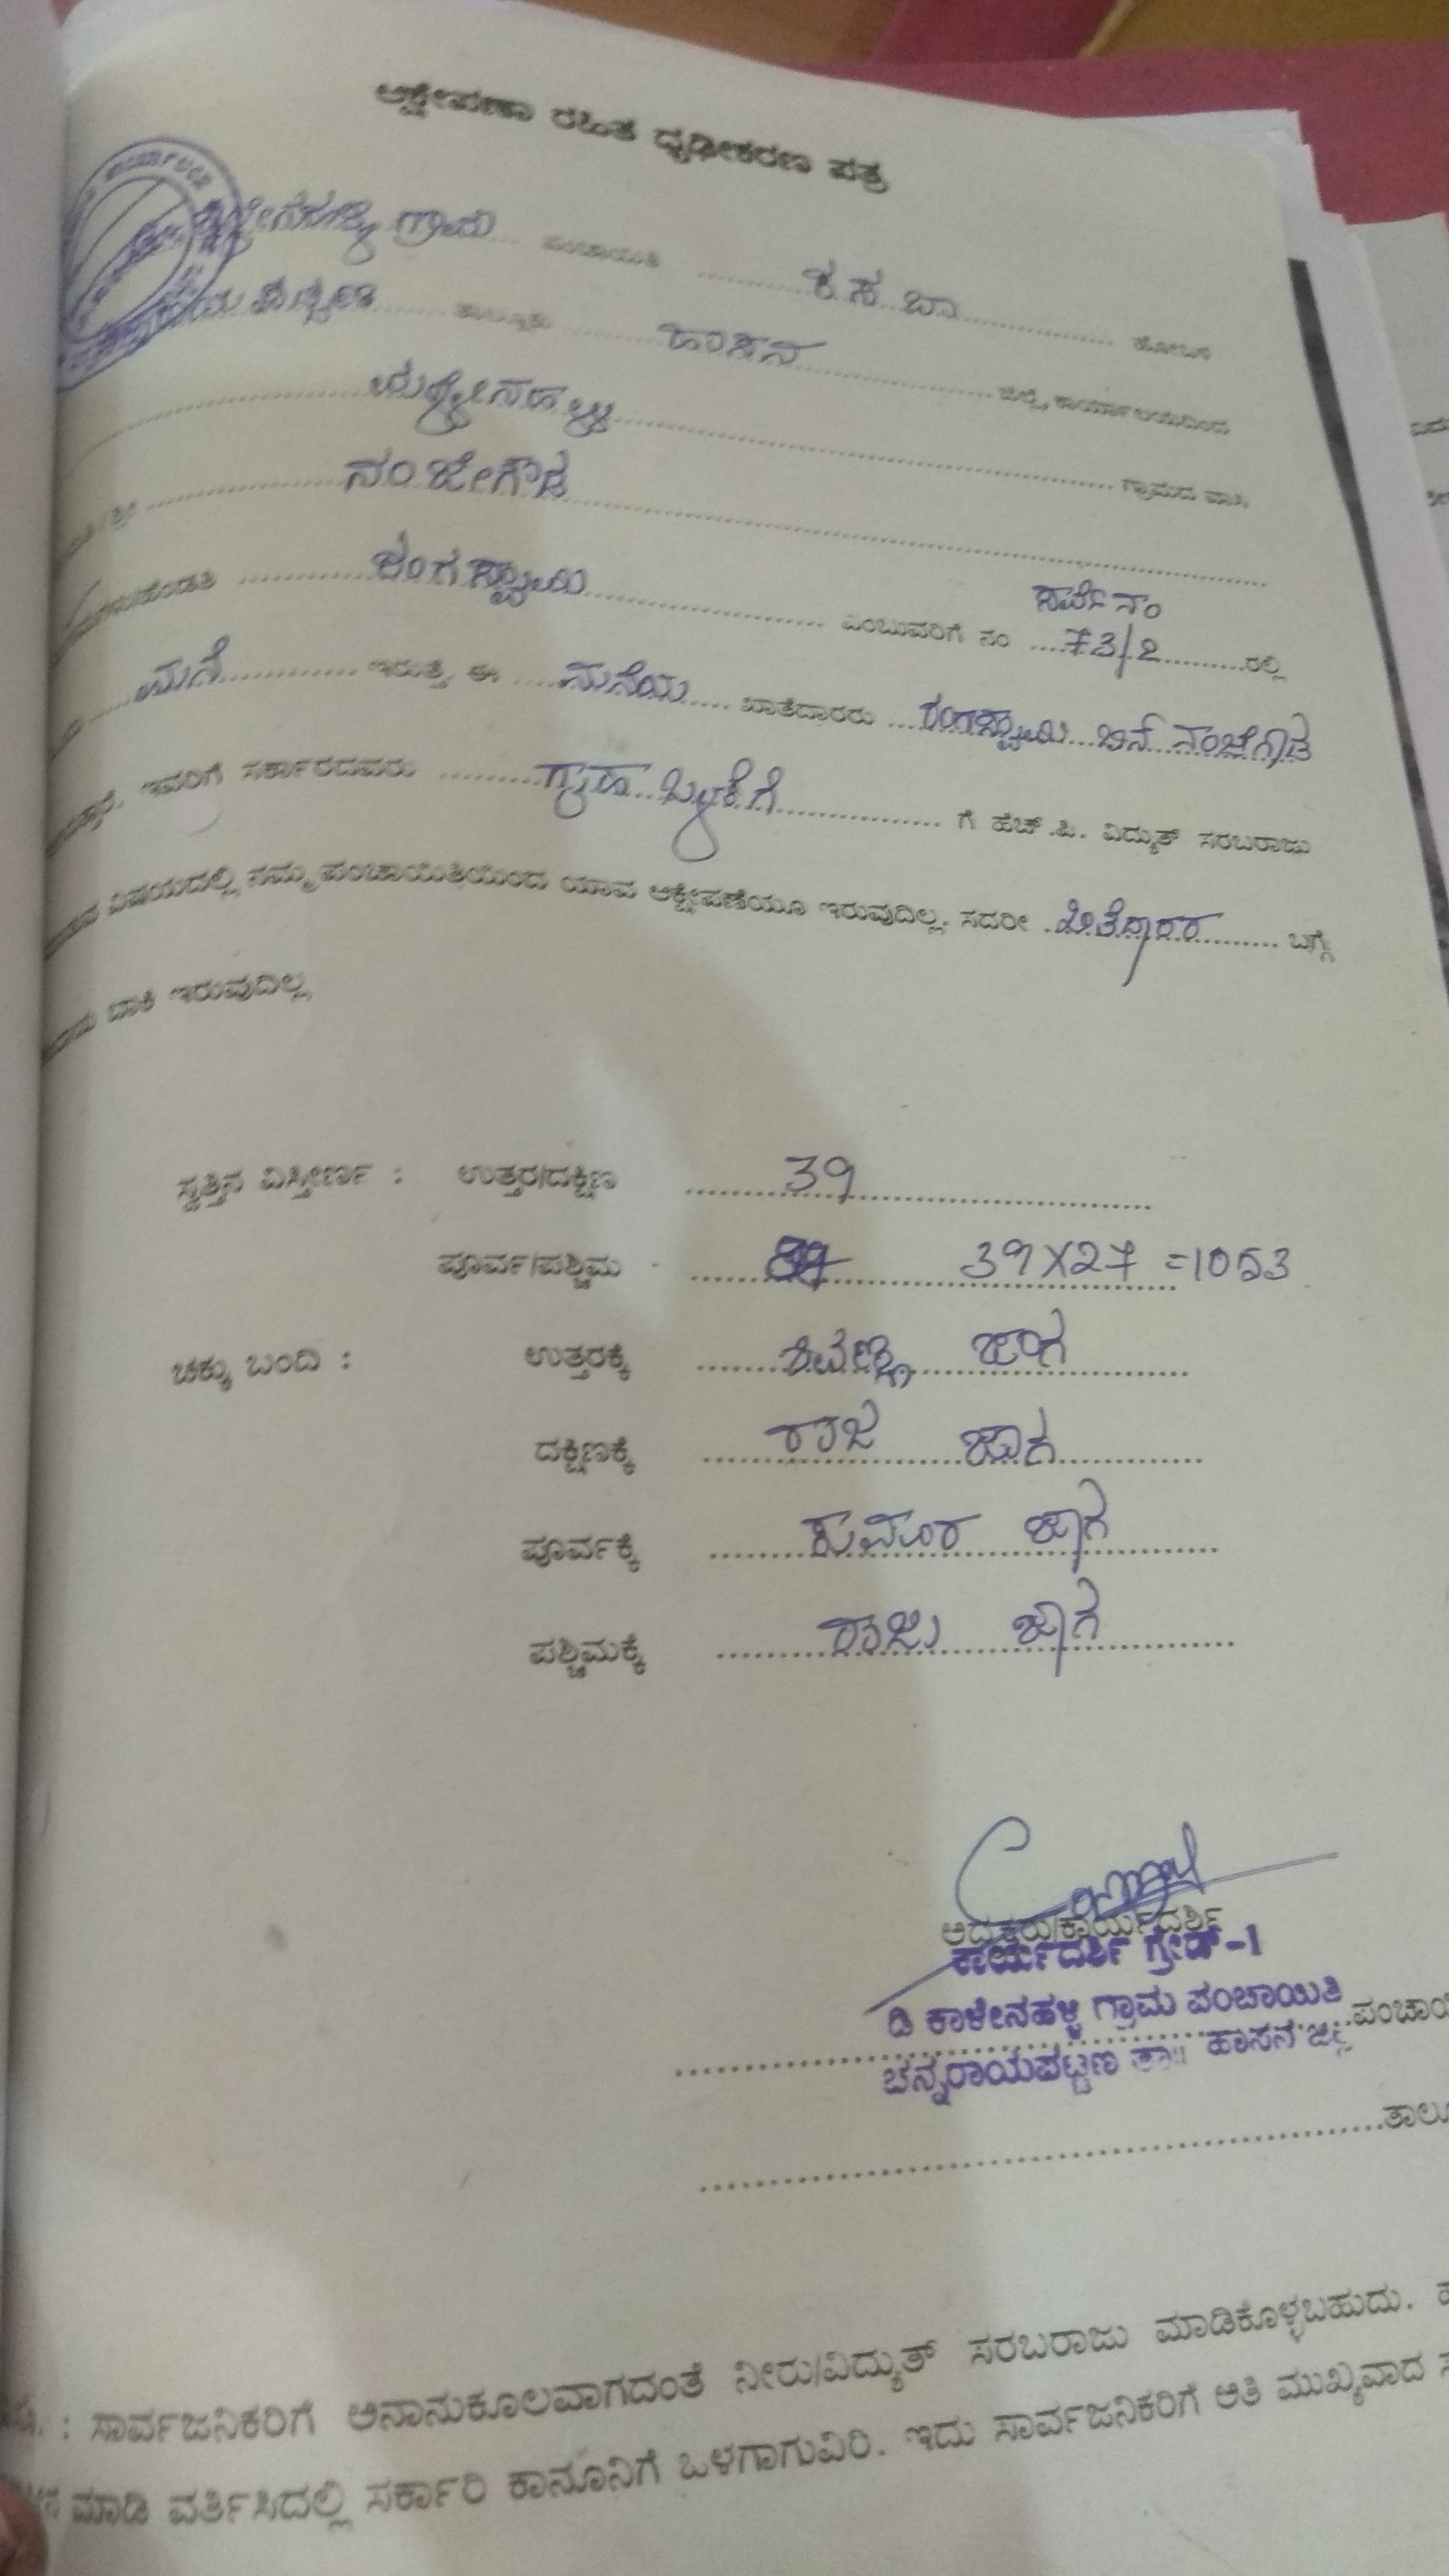 ಆಕ್ಷೇಪಣಾ ರಹಿತ ಧೃಢೀಕರಣ ಪತ್ರ
ಗ್ರಾಮ ಪಂಚಾಯಿತಿ ಕಸಬಾ ಹೋಬಳಿ
ತಾಲ್ಲೂಕು ಹಾಸನ ಜಿಲ್ಲೆ, ಕಾರ್ಯಾಲಯದಿಂದ
ಗ್ರಾಮದ ವಾಸಿ
ನಂಜೇಗೌಡ
ರಂಗಸ್ವಾಮಿ ಎಂಬುವರಿಗೆ ನಂ ಸರ್ವೆ ನಂ 73/2 ರಲ್ಲಿ
ಮನೆ ಇರುತ್ತೆ, ಈ ಮನೆಯ ಖಾತೆದಾರರು ರಂಗಸ್ವಾಮಿ ಬಿನ್ ನಂಜೆಗೌಡ
ಇವರಿಗೆ ಸರ್ಕಾರದವರು ಗೃಹ ಬಳಕೆಗೆ ಗೆ ಹೆಚ್.ಪಿ. ವಿದ್ಯುತ್ ಸರಬರಾಜು
ವಿಷಯದಲ್ಲಿ ನಮ್ಮ ಪಂಚಾಯಿತಿಯಿಂದ ಯಾವ ಆಕ್ಷೇಪಣೆಯೂ ಇರುವುದಿಲ್ಲ. ಸದರೀ ಖಾತೆದಾರರ ಬಗ್ಗೆ
ಬಾಕಿ ಇರುವುದಿಲ್ಲ
ಸ್ವತ್ತಿನ ವಿಸ್ತೀರ್ಣ : ಉತ್ತರ/ದಕ್ಷಿಣ 39
ಪೂರ್ವ/ಪಶ್ಚಿಮ 39X27 =1053
ಚಕ್ಕು ಬಂದಿ : ಉತ್ತರಕ್ಕೆ ಶಿವಣ್ಣ ಜಾಗ
ದಕ್ಷಿಣಕ್ಕೆ ರಾಜ ಜಾಗ
ಪೂರ್ವಕ್ಕೆ ಕುಮಾರ ಜಾಗ
ಪಶ್ಚಿಮಕ್ಕೆ ರಾಜು ಜಾಗ
ಅಧ್ಯಕ್ಷರು/ಕಾರ್ಯದರ್ಶಿ
ಕಾರ್ಯದರ್ಶಿ ಗ್ರೇಡ್-1
ಡಿ ಕಾಳೇನಹಳ್ಳಿ ಗ್ರಾಮ ಪಂಚಾಯಿತಿ
ಚನ್ನರಾಯಪಟ್ಟಣ ತಾ॥ ಹಾಸನ ಜಿಲ್ಲೆ
: ಸಾರ್ವಜನಿಕರಿಗೆ ಅನಾನುಕೂಲವಾಗದಂತೆ ನೀರು/ವಿದ್ಯುತ್ ಸರಬರಾಜು ಮಾಡಿಕೊಳ್ಳಬಹುದು.
ಮಾಡಿ ವರ್ತಿಸಿದಲ್ಲಿ ಸರ್ಕಾರಿ ಕಾನೂನಿಗೆ ಒಳಗಾಗುವಿರಿ. ಇದು ಸಾರ್ವಜನಿಕರಿಗೆ ಅತಿ ಮುಖ್ಯವಾದ